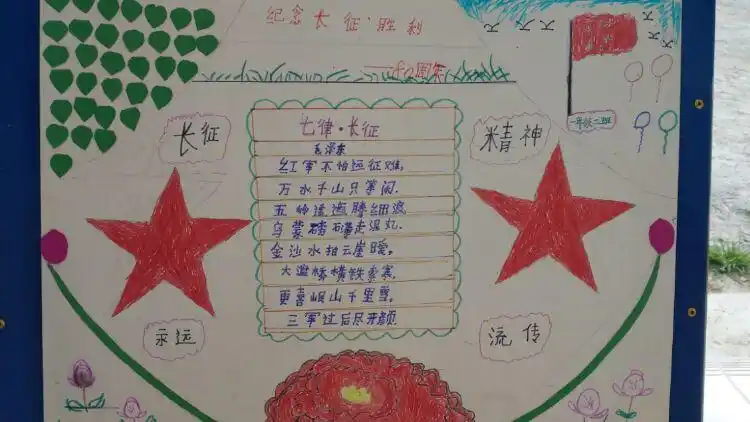 纪念长征·胜利
80周年
一年级二班
长征
精神
七律·长征
毛泽东
红军不怕远征难,
万水千山只等闲.
五岭逶迤腾细浪,
乌蒙磅礴走泥丸.
金沙水拍云崖暖,
大渡桥横铁索寒.
更喜岷山千里雪,
三军过后尽开颜.
永远
流传